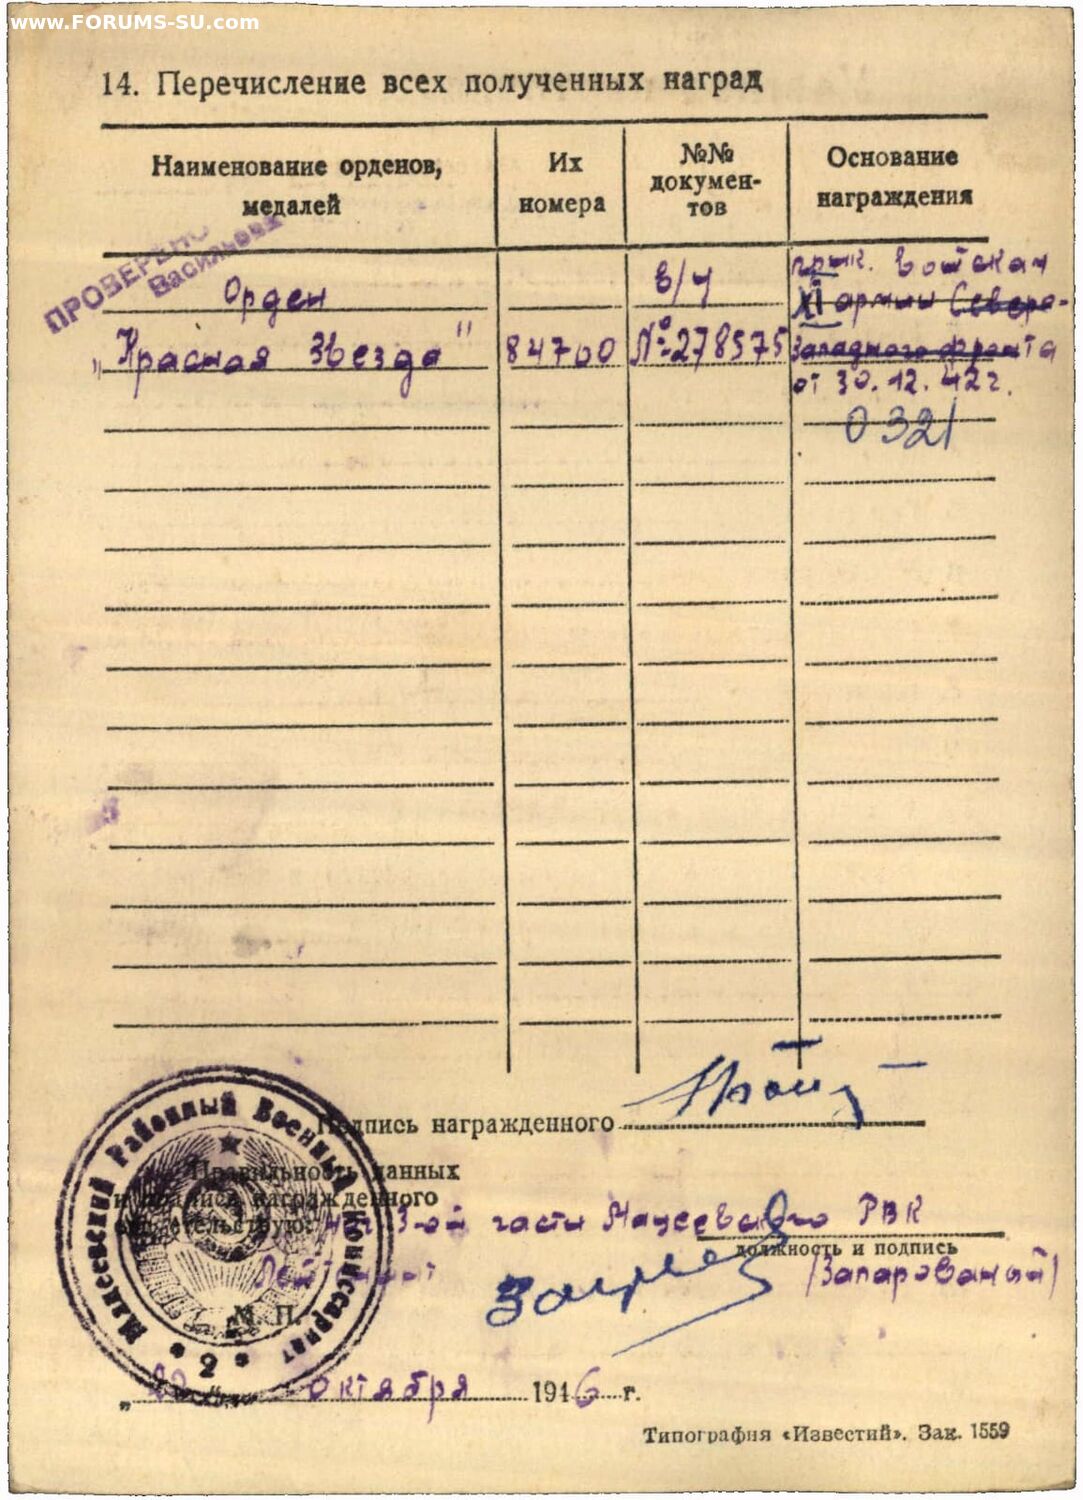 www.FORUMS-SU.com
14. Перечисление всех полученных наград
Наименование орденов, медалей
Их номера
№№ докумен-
тов
Основание награждения
ПРОВЕРЕНО
Васильева
Орден
„Красная Звезда"
84700
в/ч
№278575
прик. войскам
XI армии Северо-
Западного фронта
от 30.12.42г.
0321
Подпись награжденного
Правильность данных
и подписи награжденного
свидетельствую: нач 3-ой части Мацеевского РВК
должность и подпись
Лейтенант
/Запарованый/
М. П.
Мацеевский Районный Военный Комиссариат
2
октября 1946 г.
Типография «Известий». Зак. 1559